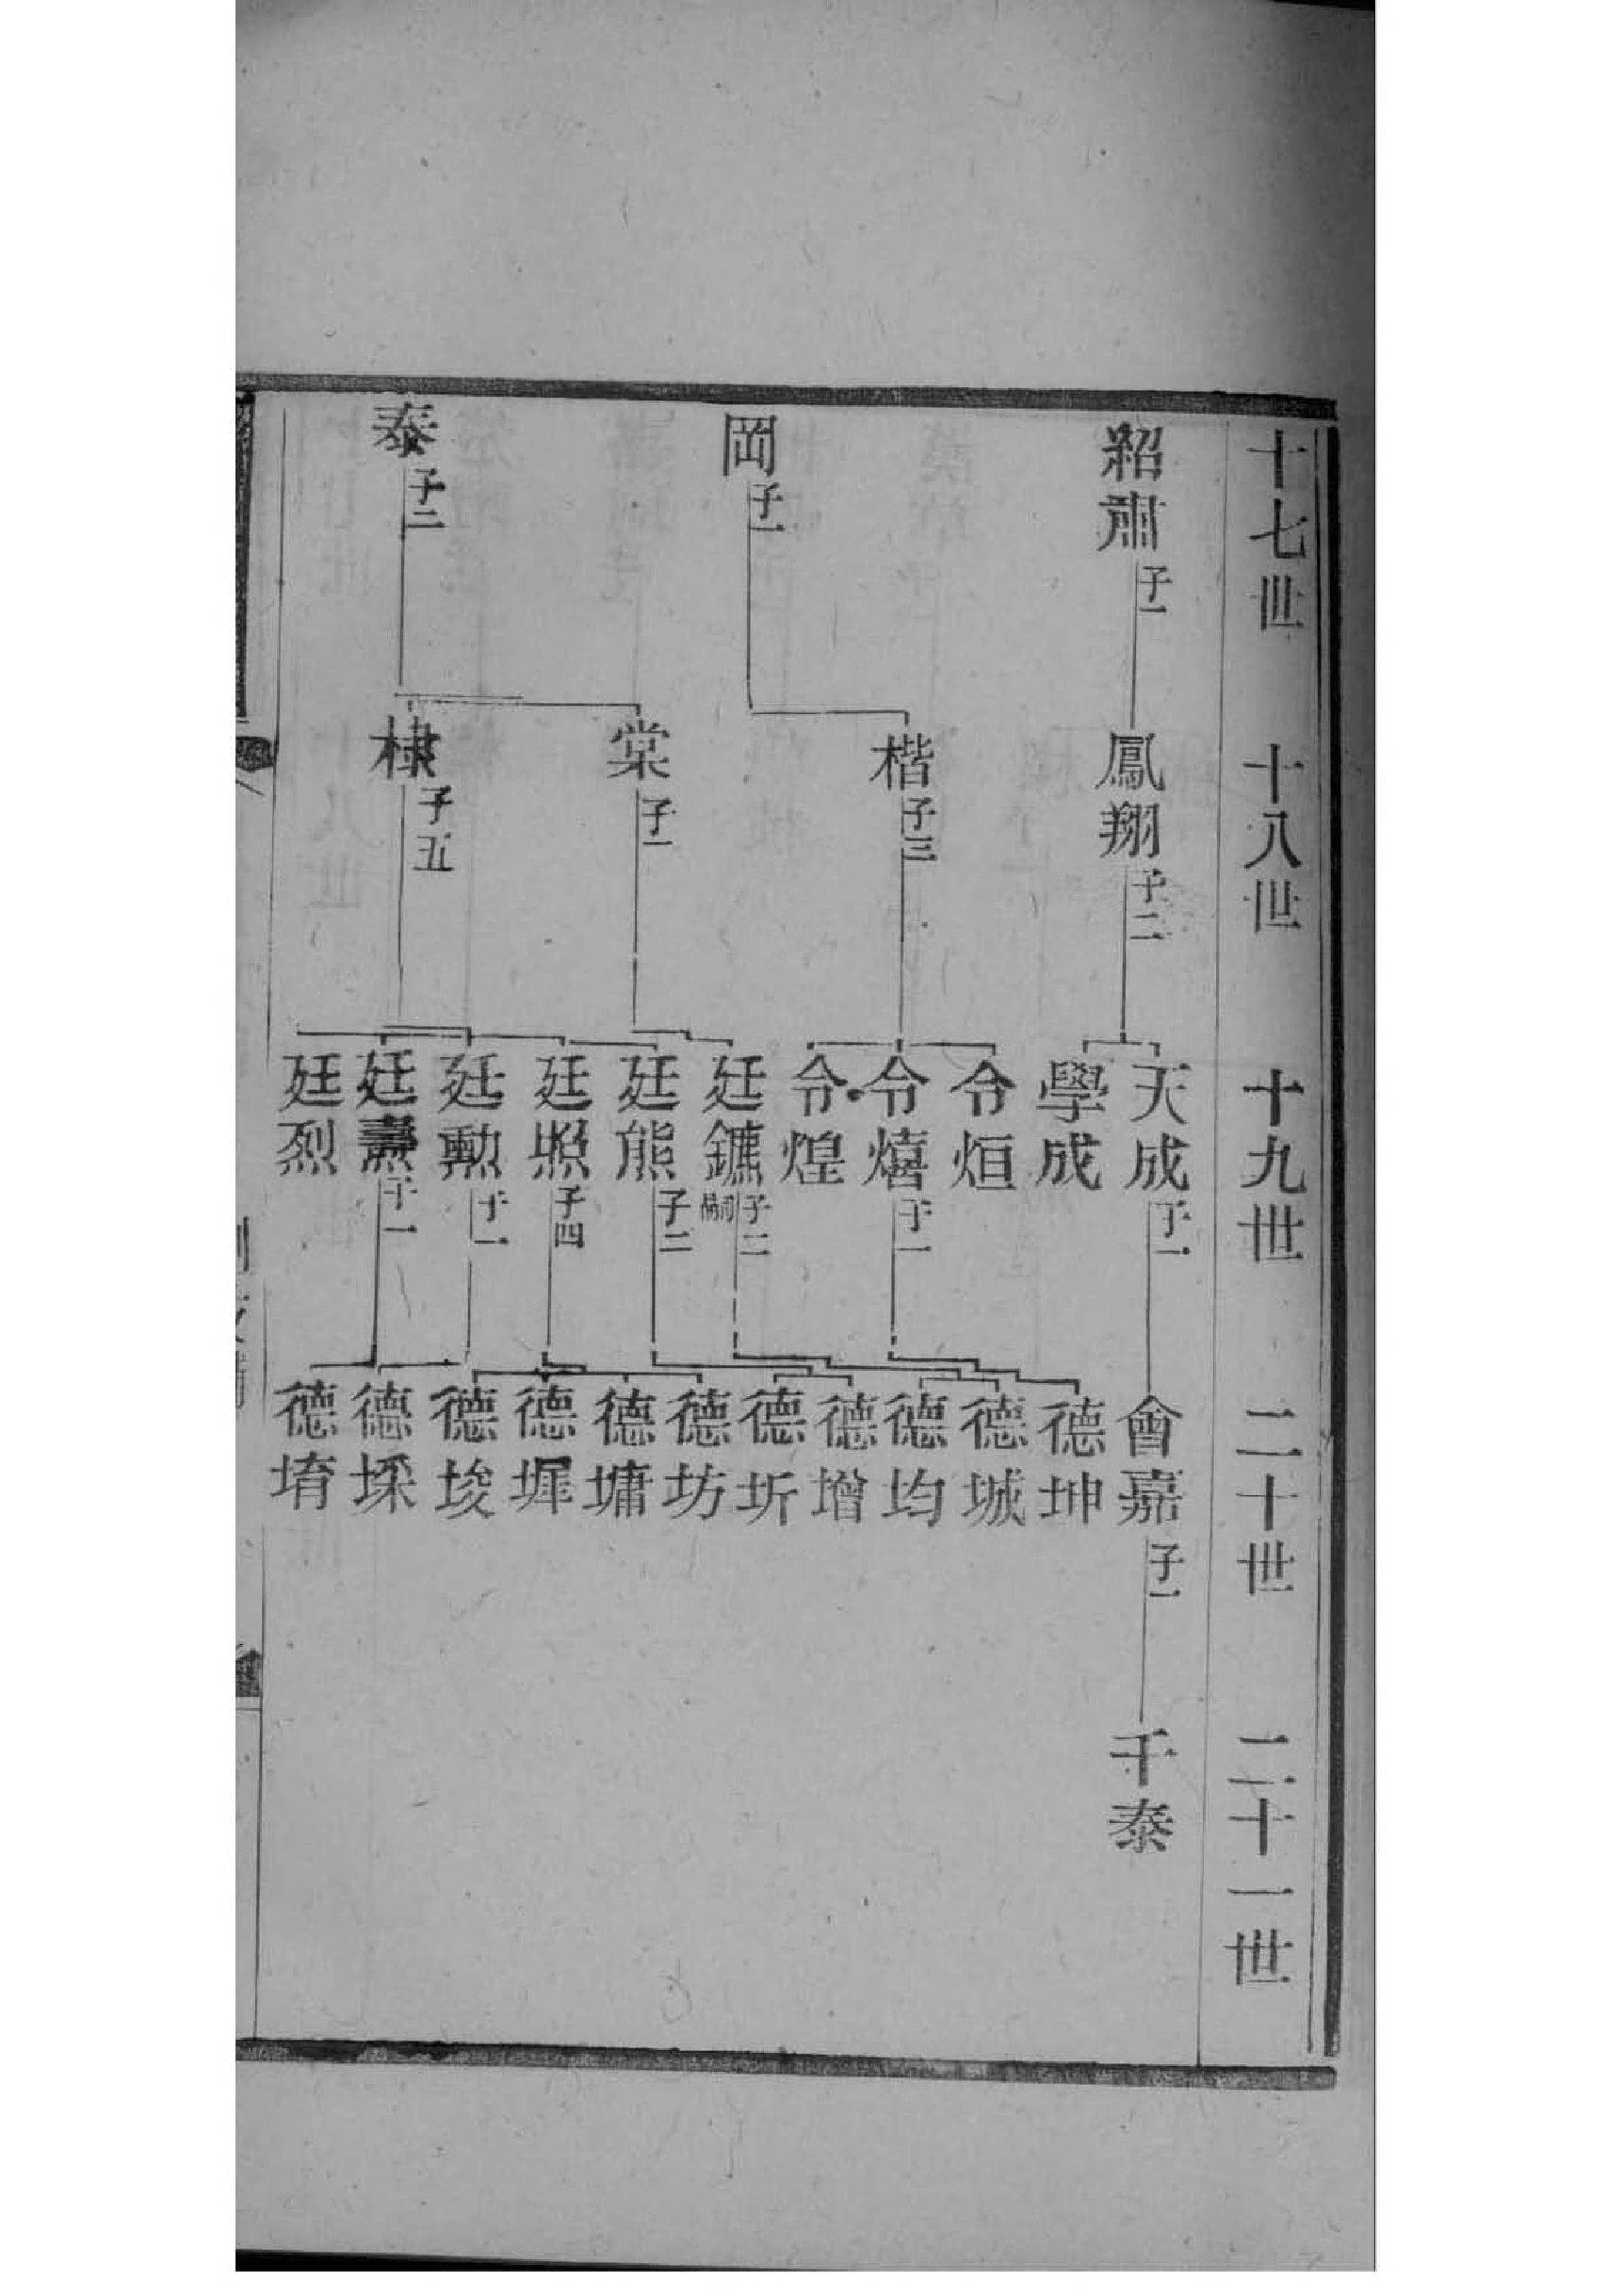 十七世
十八世
十九世
二十世
二十一世
紹肅 子一
岡 子一
泰 子二
鳳翔 子二
楷 子三
棠 子一
棣 子五
天成 子一
學成
令烜
令熺 子一
令煌
廷鑣 子二
廷熊 子二
廷照 子四
廷勳 子一
廷燾 子一
廷烈
會嘉 子一
德坤
德城
德均
德增
德圻
德坊
德墉
德墀
德埈
德埰
德堉
千泰